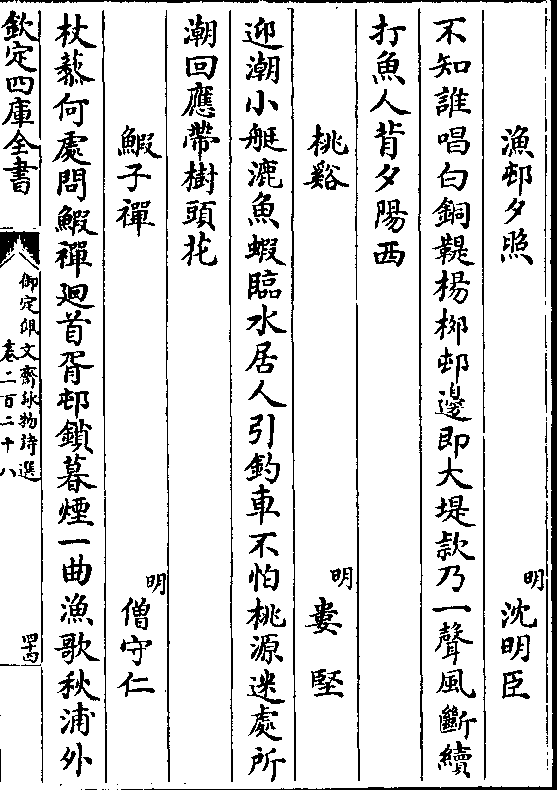 漁邨夕照
明沈明臣
不知誰唱白銅鞮楊栁邨邊即大堤欵乃一聲風斷續
打魚人背夕陽西
桃谿
明婁堅
迎潮小艇漉魚蝦臨水居人引釣車不怕桃源迷處所
潮回應帶樹頭花
鰕子禪
明僧守仁
杖藜何處問鰕禪廻首胥邨鎖暮煙一曲漁歌秋浦外
欽定四庫全書
御定佩文齋詠物詩選
卷二百二十八
四十四